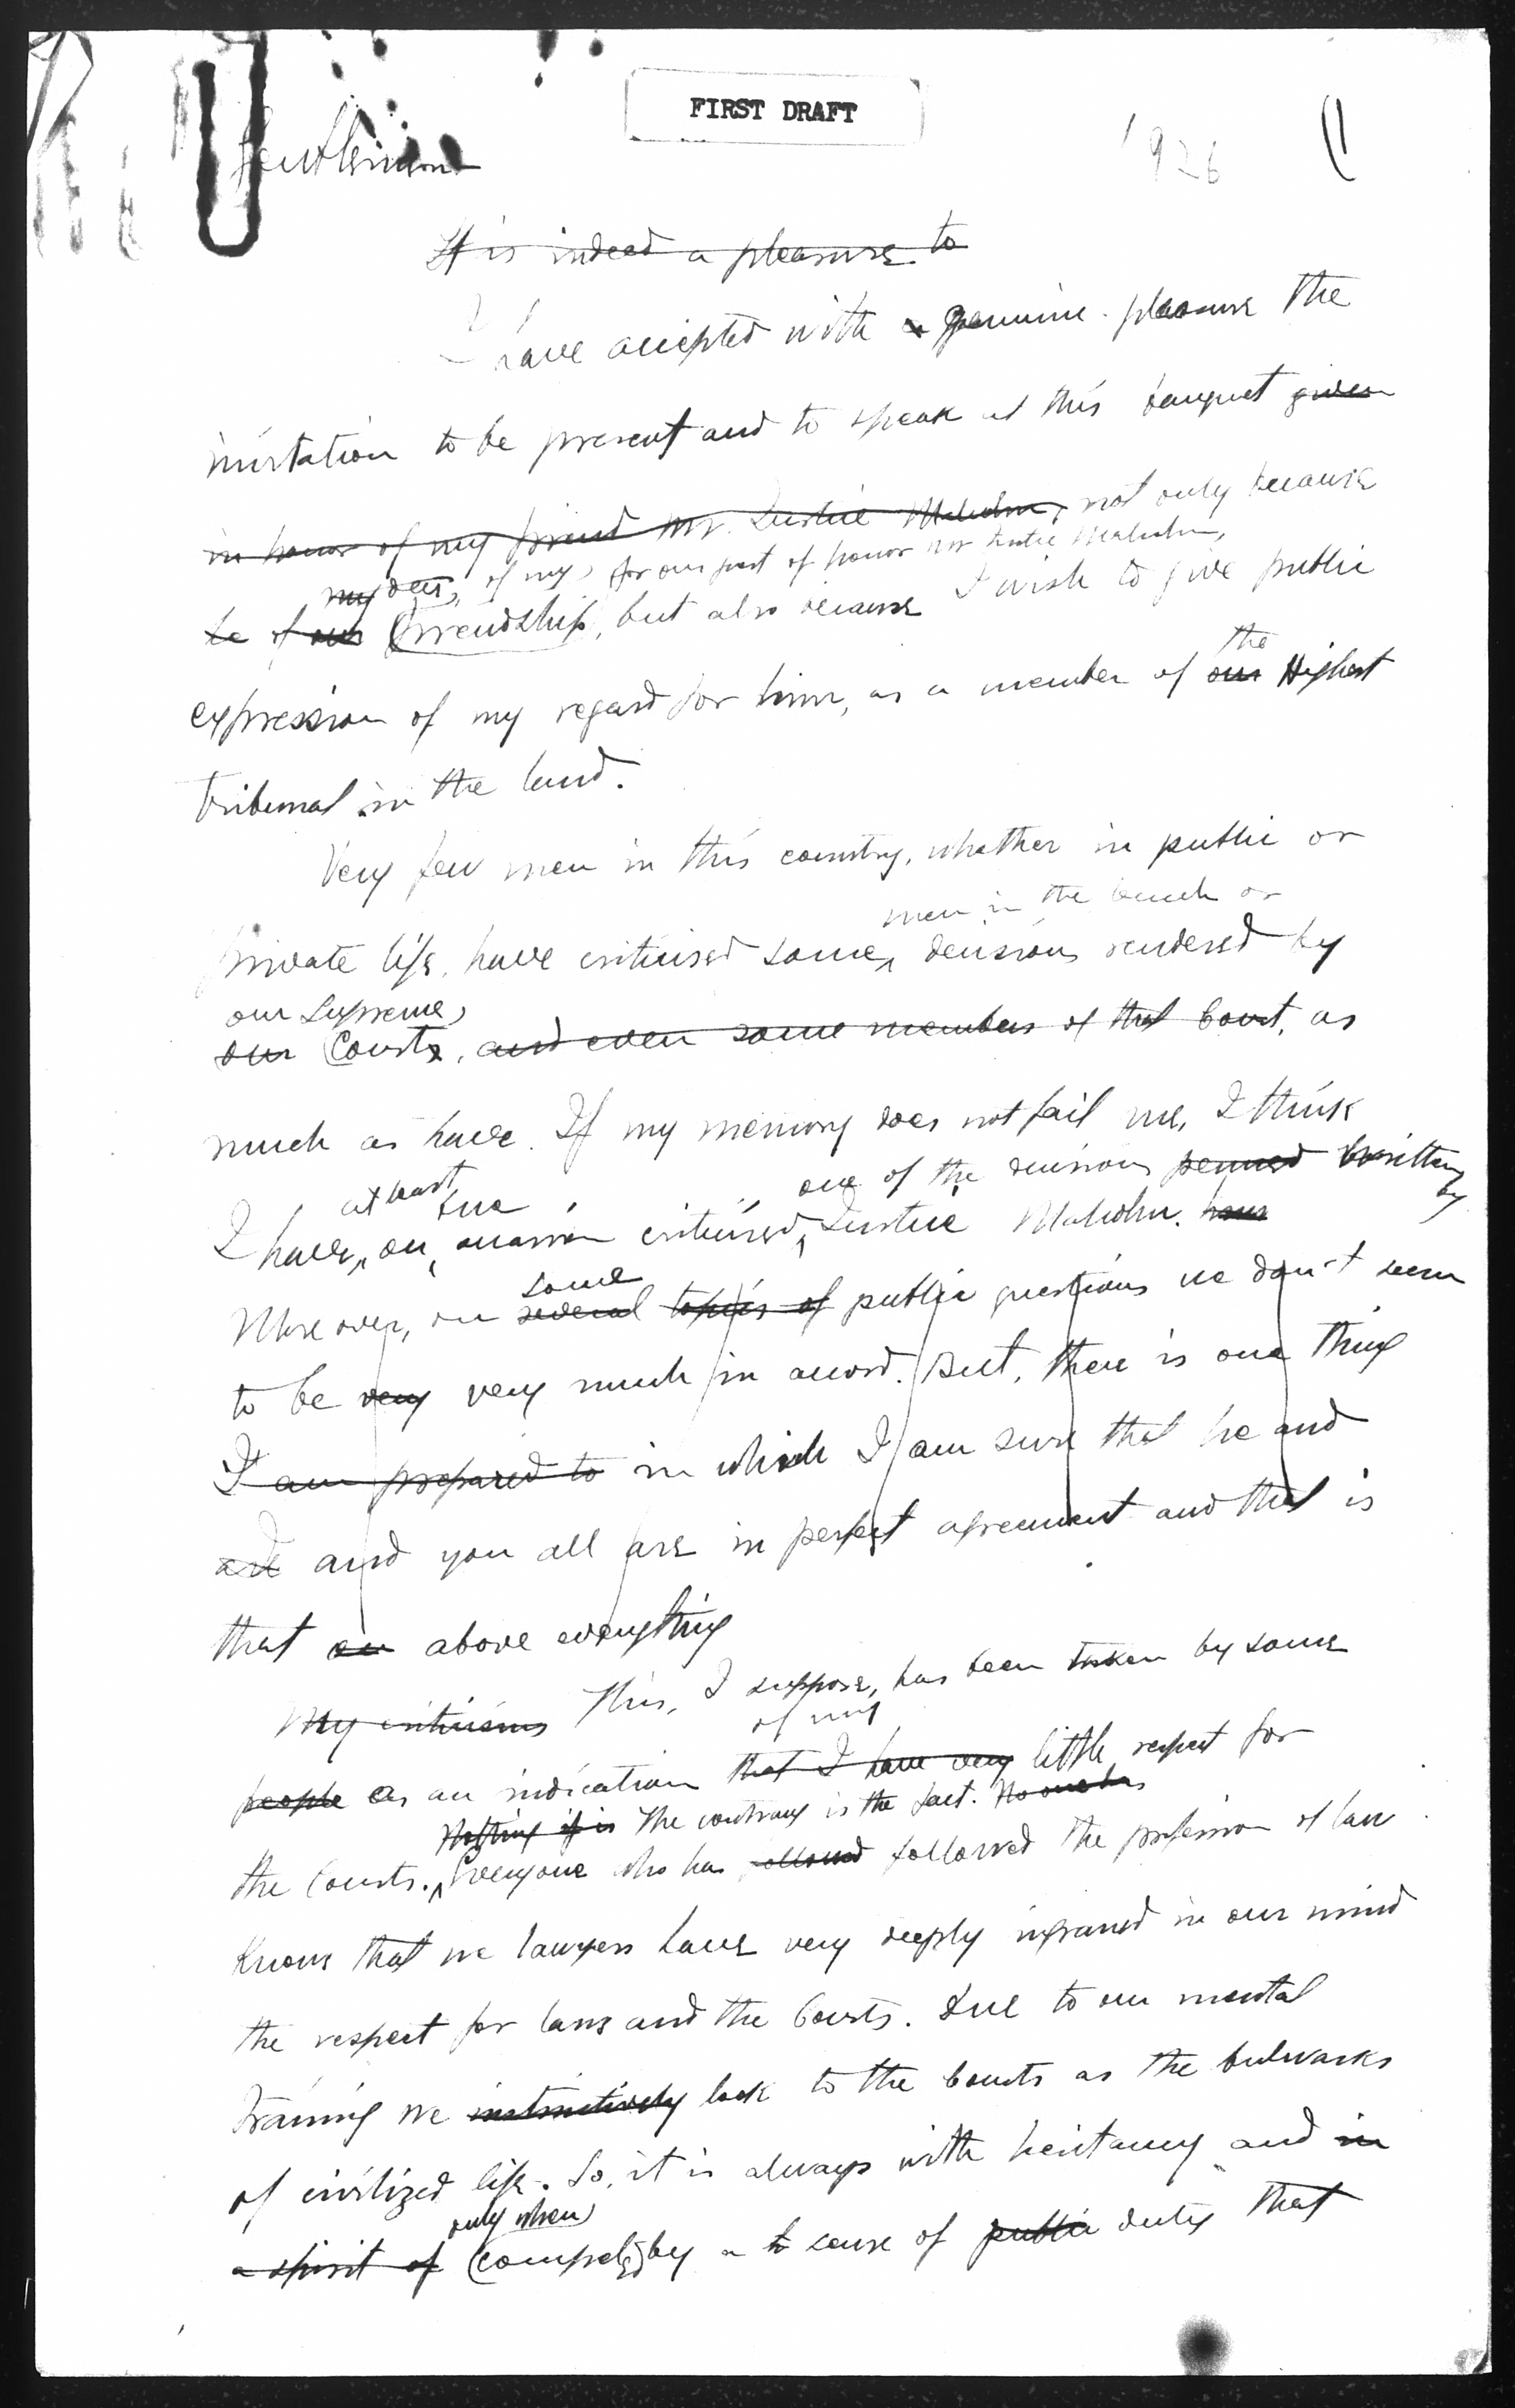 FIRST DRAFT
1926
Gentlemen
It is indeed a pleasure to
I have accepted with a genuine pleasure the
invitation to be present and to speak at this banquet given
in honor of my friend Mr. Justice Malcolm, not only because
my deep, of my for our guest of honor Mr Justice Malcolm,
of our friendship, but also because I wish to give public
the
expression of my regard for him, as a member of our Highest
tribunal in the land.
Very few men in this country, whether in public or
men in the bench or
private life, have criticised some decisions rendered by
our Supreme
our Courts, and even some members of that Court, as
much as have. If my memory does not fail me, I think
at least one one of the decisions penned written by
I have, on occasion criticised Justice Malcolm. has
some
Moreover, on several topics of public questions we don't seem
to be very very much in accord. But, there is one thing
I am prepared to in which I am sure that he and
and and you all are in perfect agreement and that is
that on above everything
My criticisms This, I suppose, has been taken by some
of my
people as an indication that I have very little respect for
Nothing if is The contrary is the fact. No one has
the Courts. Everyone who has followed followed the profession of law
knows that we lawyers have very deeply ingraned in our mind
the respect for laws and the Courts. Due to our mental
training we instinctively look to the Courts as the bulwarks
of civilized life. So, it is always with hesitancy and in
only when
a spirit of compelled by a sense of public duty that